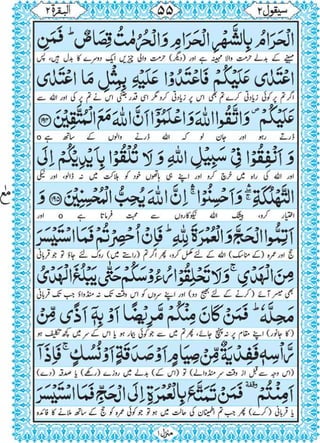 سیقول ٢
۵۵
البقرة ٢
الْحَرَامُ بِالشَّهْرِ الْحَرَامِ وَالْحُرُمٰتُ قِصَاصٌ ؕ فَمَنِ
مہینے کے بدلے حرمت والا مہینہ ہے اور (دیگر) حرمت والی چیزیں ایک دوسرے کا بدل ہیں، پس
اعْتَدٰى عَلَيْكُمْ فَاعْتَدُوْا عَلَيْهِ بِمِثْلِ مَا اعْتَدٰى
اگر تم پر کوئی زیادتی کرے تم بھی اس پر زیادتی کرو مگر اسی قدر جتنی اس نے تم پر کی اور اللہ سے
عَلَيْكُمْ ۪ وَاتَّقُوا اللّٰهَ وَاعْلَمُوْۤا اَنَّ اللّٰهَ مَعَ الْمُتَّقِيْنَ ﴿۱۹۴﴾
ڈرتے رہو اور جان لو کہ اللہ ڈرنے والوں کے ساتھ ہے o
وَ اَنْفِقُوْا فِىْ سَبِيْلِ اللّٰهِ وَ لَا تُلْقُوْا بِاَيْدِيْكُمْ اِلَى
اور اللہ کی راہ میں خرچ کرو اور اپنے ہی ہاتھوں خود کو ہلاکت میں نہ ڈالو، اور نیکی
التَّهْلُكَةِ ۛۚ وَاَحْسِنُوْا ۛۚ اِنَّ اللّٰهَ يُحِبُّ الْمُحْسِنِيْنَ ﴿۱۹۵﴾ وَ
اختیار کرو، بیشک اللہ نیکوکاروں سے محبت فرماتا ہے o اور
اَتِمُّوا الْحَجَّ وَالْعُمْرَةَ لِلّٰهِ ؕ فَاِنْ اُحْصِرْتُمْ فَمَا اسْتَيْسَرَ
حج اور عمرہ (کے مناسک) اللہ کے لئے مکمل کرو، پھر اگر تم (راستے میں) روک لئے جاؤ تو جو قربانی
مِنَ الْهَدْىِ ۚ وَلَا تَحْلِقُوْا رُءُوْسَكُمْ حَتّٰى يَبْلُغَ الْهَدْىُ
بھی میسر آئے (کرنے کے لئے بھیج دو) اور اپنے سروں کو اس وقت تک نہ منڈواؤ جب تک قربانی
مَحِلَّهٗ ؕ فَمَنْ كَانَ مِنْكُمْ مَّرِيْضًا اَوْ بِهٖۤ اَذًى مِّنْ
(کا جانور) اپنے مقام پر نہ پہنچ جائے، پھر تم میں سے جو کوئی بیمار ہو یا اس کے سر میں کچھ تکلیف ہو
رَّاْسِهٖ فَفِدْيَةٌ مِّنْ صِيَامٍ اَوْ صَدَقَةٍ اَوْ نُسُكٍ ۚ فَاِذَاۤ
(اس وجہ سے قبل از وقت سر منڈوا لے) تو (اس کے) بدلے میں روزے (رکھے) یا صدقہ (دے)
اَمِنْتُمْ ۥ فَمَنْ تَمَتَّعَ بِالْعُمْرَةِ اِلَى الْحَجِّ فَمَا اسْتَيْسَرَ
یا قربانی (کرے)، پھر جب تم اطمینان کی حالت میں ہو تو جو کوئی عمرہ کو حج کے ساتھ ملانے کا فائدہ
منزل ١